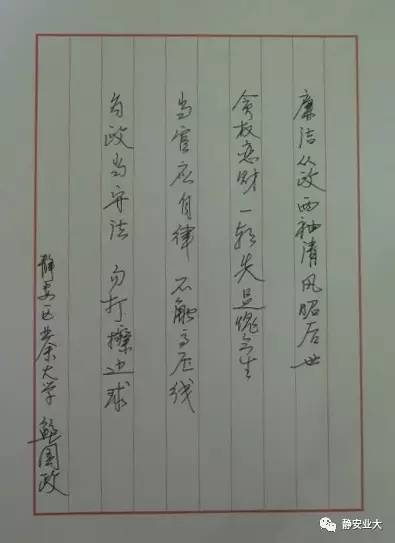 廉洁从政 两袖清风昭后世
贪权恋财 一朝失足愧今生
当官应自律 不触高压线
为政当守法 勿打擦边球
静安区业余大学 鲍国政
静安业大